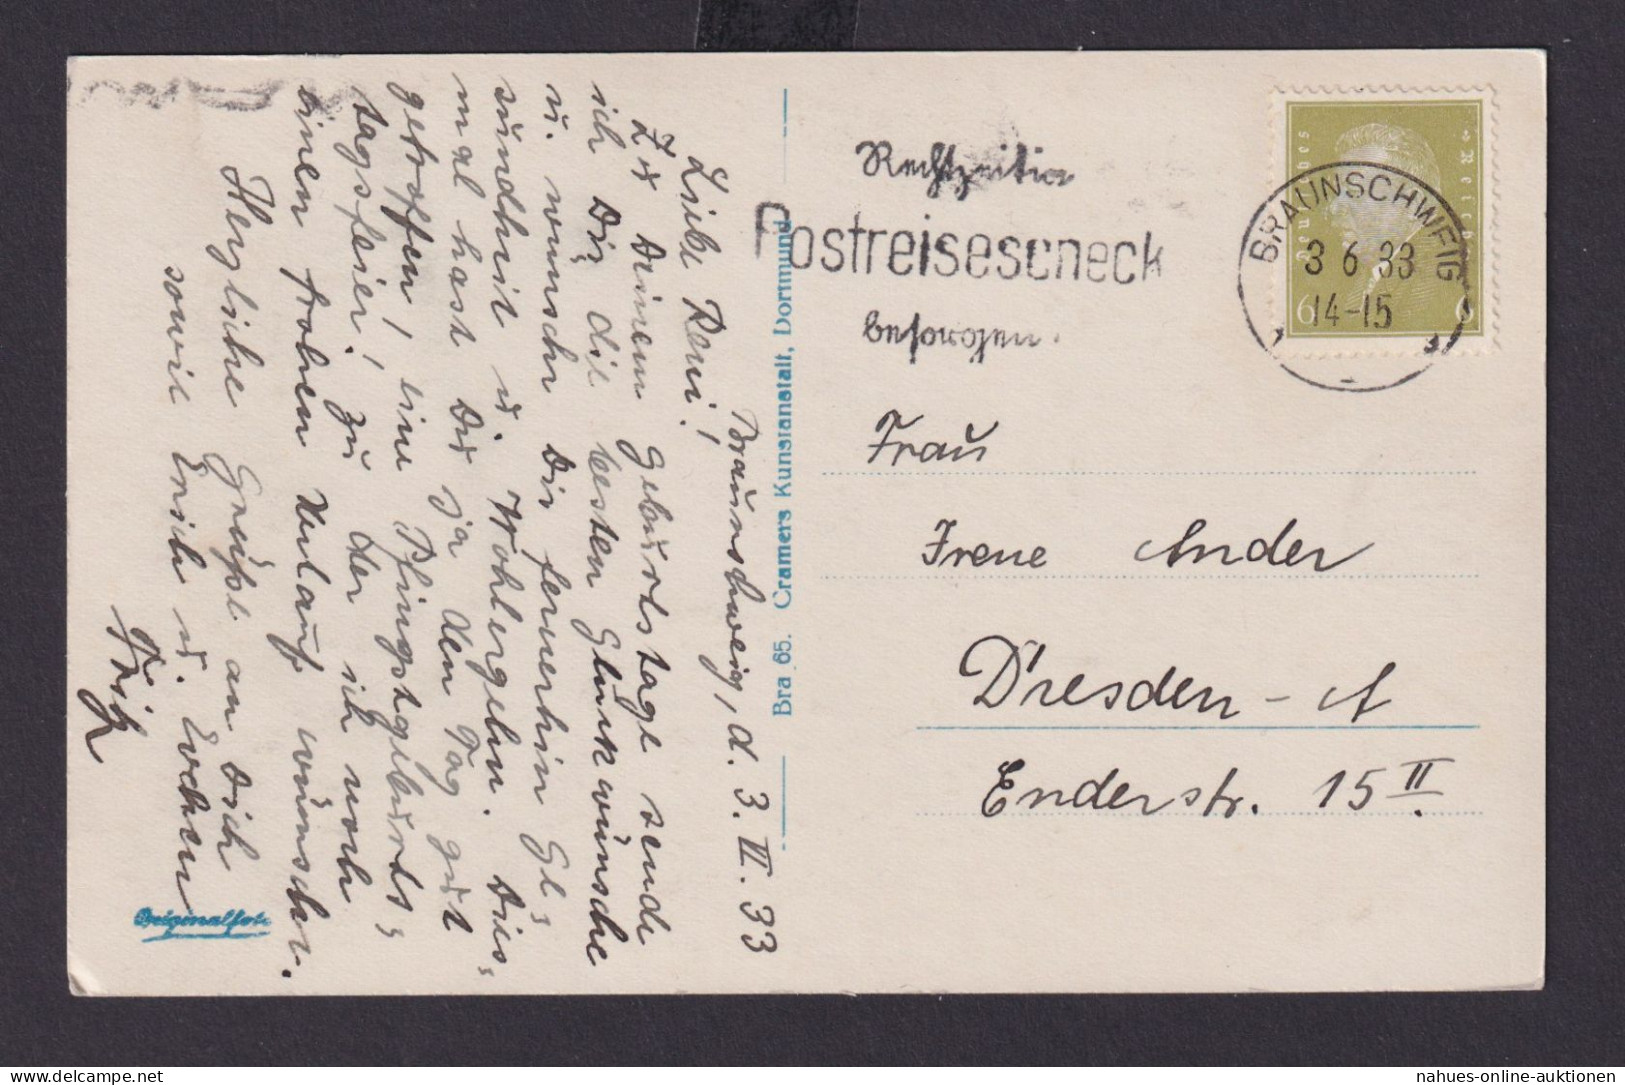 Braunschweig, d. 3. VI. 33
Liebe Reni!
Zu Deinem Geburtstage sende
ich Dir die besten Glückwünsche
u. wünsche Dir fernerhin Ge=
sundheit u. Wohlergehn. Dies=
mal hast Du ja den Tag gut
getroffen, eine Pfingstgeburts=
tagsfeier! Zu der ich noch
einen frohen Verlauf wünsche.
Herzliche Grüße an Dich
sowie Erich u. Evchen
Fritz
Originalfoto
Bra 65. Cramers Kunstanstalt, Dortmund
Rechtzeitig
Postreisescheck
besorgen.
Deutsches Reich
6 6
BRAUNSCHWEIG
3 6 33
14-15
Frau
Irene Ander
Dresden-A
Enderstr. 15 II
nahues-online-auktionen